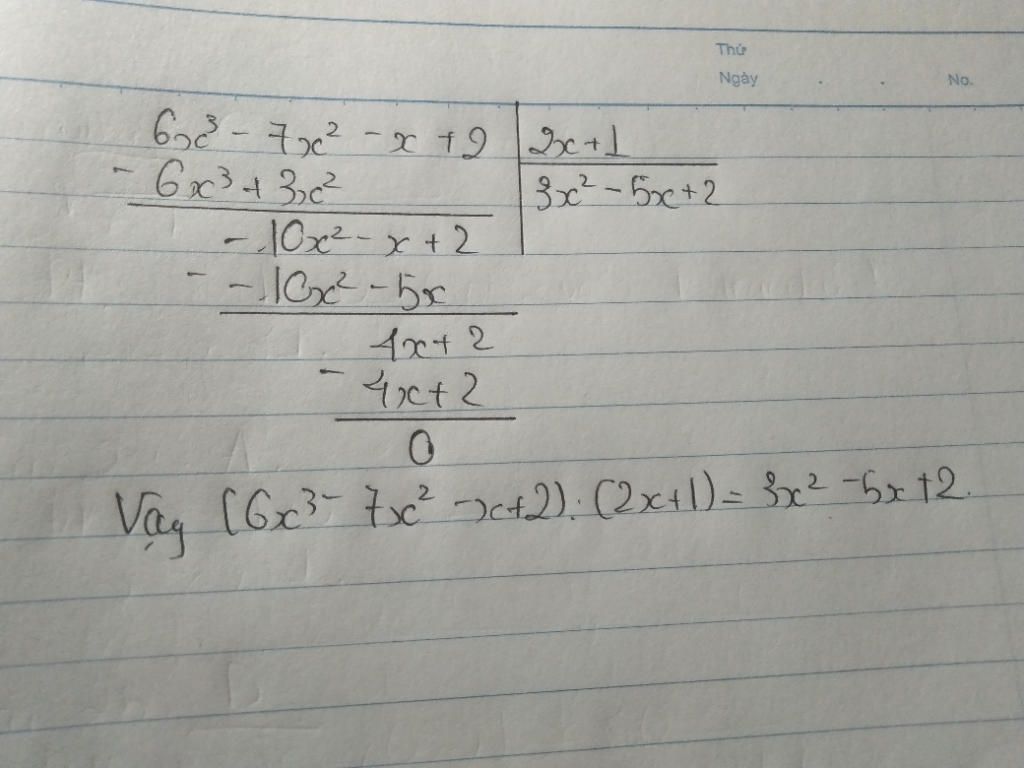 Thứ
Ngày . . No.
6x³ - 7x² - x + 2 | 2x + 1
- 6x³ + 3x² | 3x² - 5x + 2
- 10x² - x + 2
- - 10x² - 5x
4x + 2
- 4x + 2
0
Vậy (6x³ - 7x² - x + 2) : (2x + 1) = 3x² - 5x + 2.